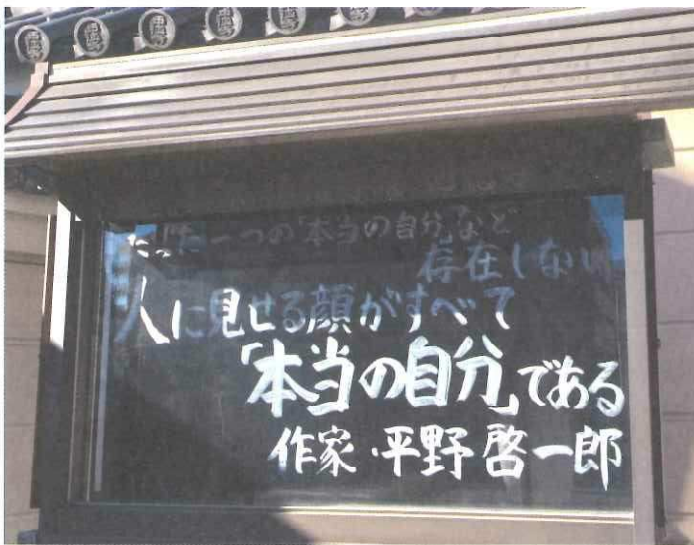 たった一つの「本当の自分」など
存在しない
人に見せる顔がすべて
「本当の自分」である
作家・平野啓一郎